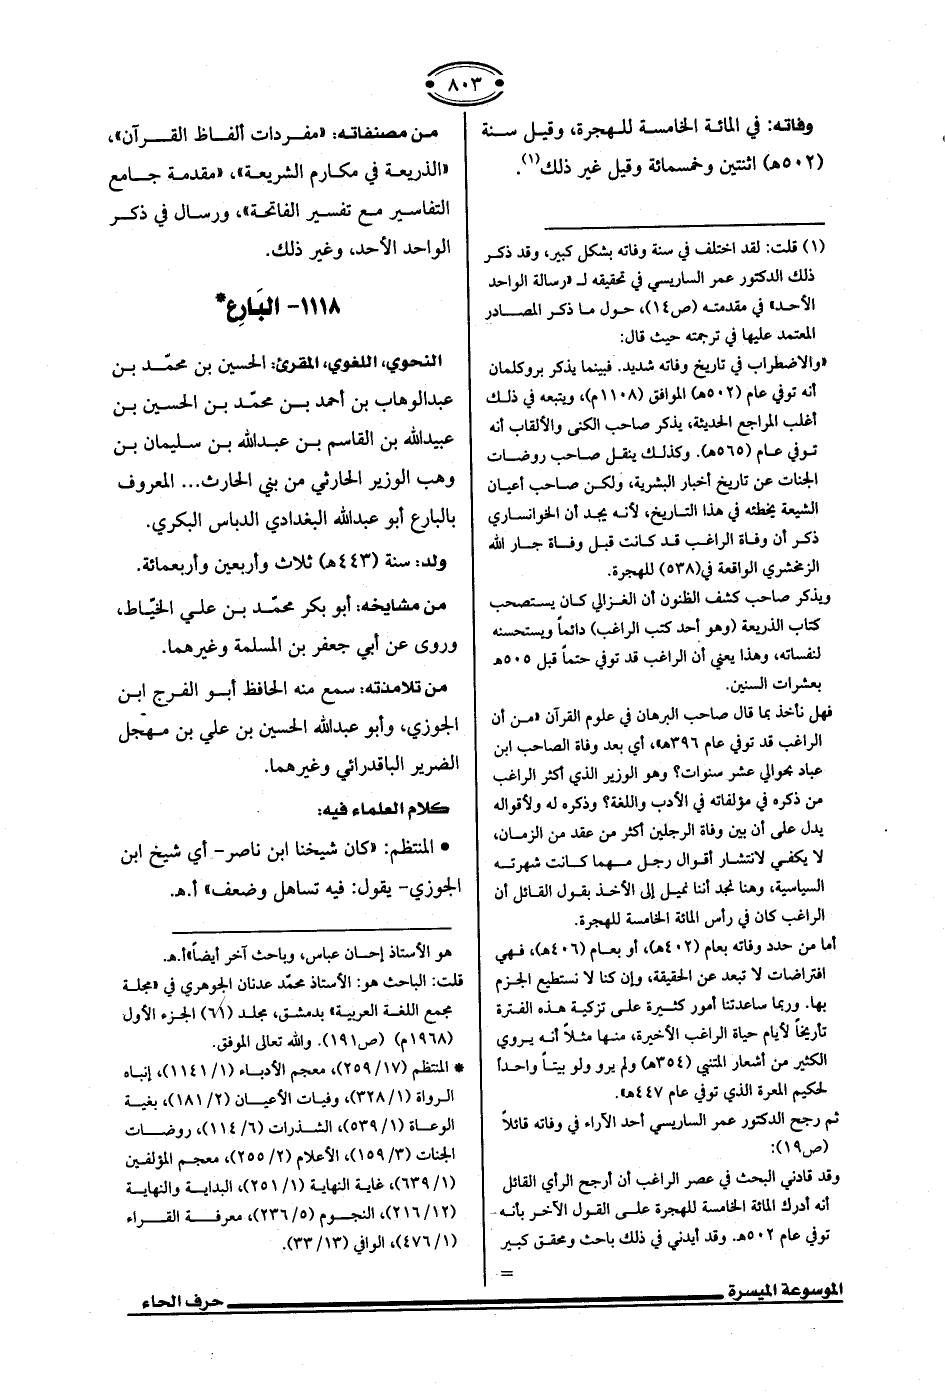 ٨٠٣
وفاته: في المائة الخامسة للهجرة، وقيل سنة
(٥٠٢هـ) اثنتين وخمسمائة وقيل غير ذلك(١).
(١) قلت: لقد اختلف في سنة وفاته بشكل كبير، وقد ذكر
ذلك الدكتور عمر الساريسي في تحقيقه لـ «رسالة الواحد
الأحد» في مقدمته (ص١٤)، حول ما ذكر المصادر
المعتمد عليها في ترجمته حيث قال:
«والاضطراب في تاريخ وفاته شديد. فبينما يذكر بروكلمان
أنه توفي عام (٥٠٢هـ) الموافق (١١٠٨م)، ويتبعه في ذلك
أغلب المراجع الحديثة، يذكر صاحب الكنى والألقاب أنه
توفي عام (٥٦٥هـ). وكذلك ينقل صاحب روضات
الجنات عن تاريخ أخبار البشرية، ولكن صاحب أعيان
الشيعة يخطئه في هذا التاريخ، لأنه يجد أن الخوانساري
ذكر أن وفاة الراغب قد كانت قبل وفاة جار الله
الزمخشري الواقعة في(٥٣٨) للهجرة.
ويذكر صاحب كشف الظنون أن الغزالي كان يستصحب
كتاب الذريعة (وهو أحد كتب الراغب) دائماً ويستحسنه
لنفساته، وهذا يعني أن الراغب قد توفي حتماً قبل ٥٠٥هـ
بعشرات السنين.
فهل نأخذ بما قال صاحب البرهان في علوم القرآن «من أن
الراغب قد توفي عام ٣٩٦هـ»، أي بعد وفاة الصاحب ابن
عباد بحوالي عشر سنوات؟ وهو الوزير الذي أكثر الراغب
من ذكره في مؤلفاته في الأدب واللغة؟ وذكره له ولأقواله
يدل على أن بين وفاة الرجلين أكثر من عقد من الزمان،
لا يكفي لانتشار أقوال رجل مهما كانت شهرته
السياسية، وهنا نجد أننا نميل إلى الأخذ بقول القائل أن
الراغب كان في رأس المائة الخامسة للهجرة.
أما من حدد وفاته بعام (٤٠٢هـ)، أو بعام (٤٠٦هـ)، فهي
افتراضات لا تبعد عن الحقيقة، وإن كنا لا نستطيع الجزم
بها. وربما ساعدتنا أمور كثيرة على تزكية هذه الفترة
تأريخاً لأيام حياة الراغب الأخيرة، منها مثلاً أنه يروي
الكثير من أشعار المتنبي (٣٥٤هـ) ولم يرو ولو بيتاً واحداً
لحكيم المعرة الذي توفي عام ٤٤٧هـ».
ثم رجح الدكتور عمر الساريسي أحد الآراء في وفاته قائلاً
(ص١٩):
وقد قادني البحث في عصر الراغب أن أرجح الرأي القائل
أنه أدرك المائة الخامسة للهجرة على القول الآخر بأنه
توفي عام ٥٠٢هـ. وقد أيدني في ذلك باحث ومحقق كبير
=
من مصنفاته: «مفردات ألفاظ القرآن»،
«الذريعة في مكارم الشريعة»، «مقدمة جامع
التفاسير مع تفسير الفاتحة»، ورسال في ذكر
الواحد الأحد، وغير ذلك.
١١١٨- البَارع*
النحوي، اللغوي، المقرئ: الحسين بن محمّد بن
عبدالوهاب بن أحمد بن محمّد بن الحسين بن
عبيدالله بن القاسم بن عبدالله بن سليمان بن
وهب الوزير الحارثي من بني الحارث... المعروف
بالبارع أبو عبدالله البغدادي الدباس البكري.
ولد: سنة (٤٤٣هـ) ثلاث وأربعين وأربعمائة.
من مشايخه: أبو بكر محمّد بن علي الخيّاط،
وروى عن أبي جعفر بن المسلمة وغيرهما.
من تلامذته: سمع منه الحافظ أبو الفرج ابن
الجوزي، وأبو عبدالله الحسين بن علي بن مهجل
الضرير الباقدرائي وغيرهما.
كلام العلماء فيه:
• المنتظم: «كان شيخنا ابن ناصر- أي شيخ ابن
الجوزي- يقول: فيه تساهل وضعف» أ.هـ.
هو الأستاذ إحسان عباس، وباحث آخر أيضاً»أ.هـ.
قلت: الباحث هو: الأستاذ محمّد عدنان الجوهري في «مجلة
مجمع اللغة العربية» بدمشق، مجلد (٦١) الجزء الأول
(١٩٦٨م) (ص١٩١). والله تعالى الموفق.
* المنتظم (١٧/ ٢٥٩)، معجم الأدباء (١/ ١١٤١)، إنباه
الرواة (١/ ٣٢٨)، وفيات الأعيان (٢/ ١٨١)، بغية
الوعاة (١/ ٥٣٩)، الشذرات (٦/ ١١٤)، روضات
الجنات (٣/ ١٥٩)، الأعلام (٢/ ٢٥٥)، معجم المؤلفين
(١/ ٦٣٩)، غاية النهاية (١/ ٢٥١)، البداية والنهاية
(١٢/ ٢١٦)، النجوم (٥/ ٢٣٦)، معرفة القراء
(١/ ٤٧٦)، الوافي (١٣/ ٣٣).
الموسوعة الميسرة
حرف الحاء